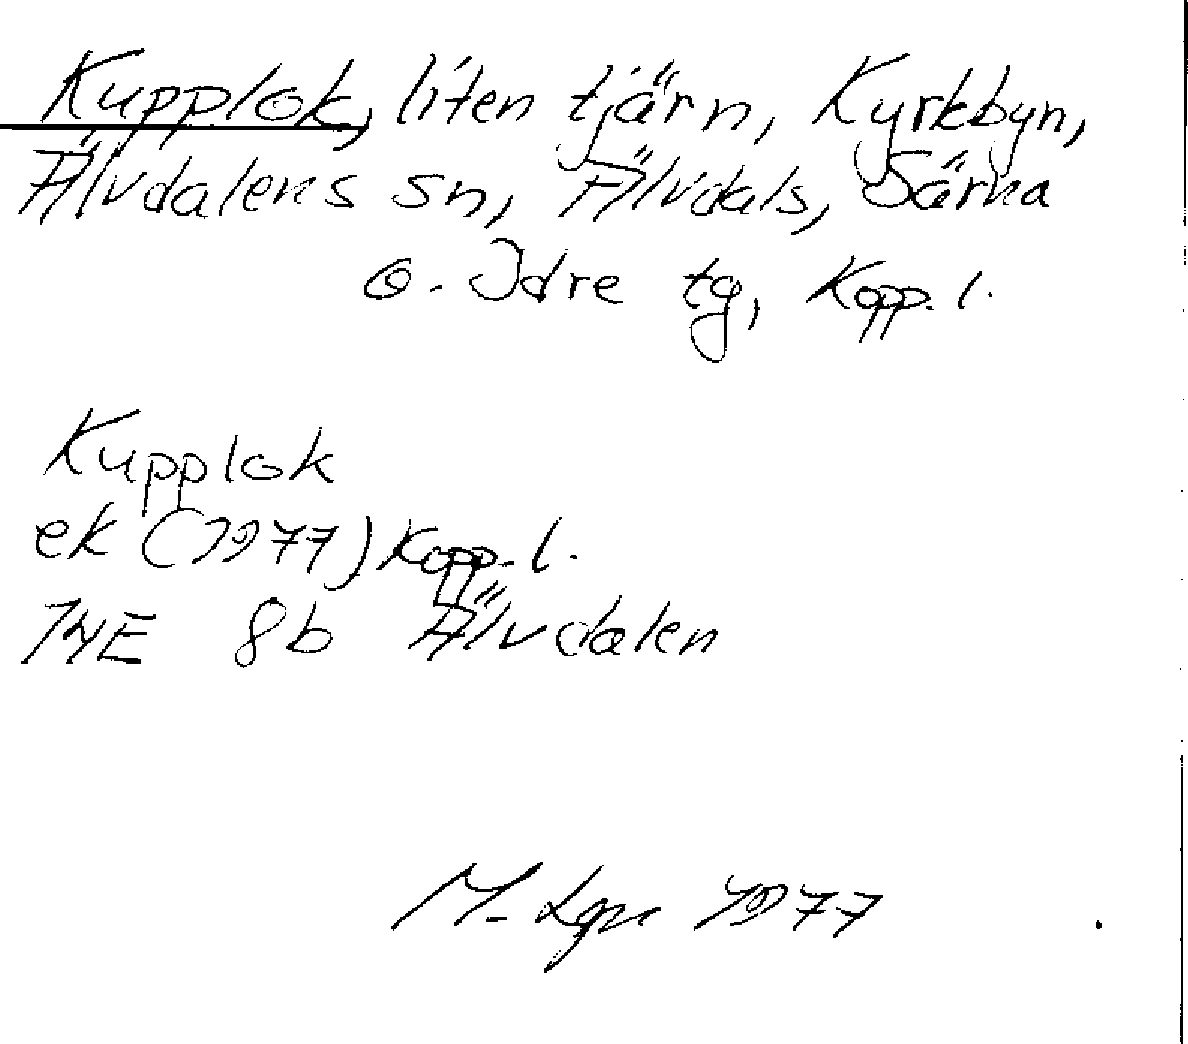 Kupplok, liten tjärn, Kyrkbyn,
Älvdalens sn, Älvdals, Särna
o. Idre tg, Kopp. l.
Kupplok
ek (1977) Kopp. l.
14E 8b Älvdalen
M. 1977